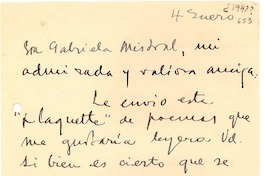 ¿1947?
4 Enero 653
Sra Gabriela Mistral, mi
admirada y valiosa amiga:
Le envío esta
"Plaquette" de poemas que
me gustaría leyera Ud.
Si bien es cierto que se